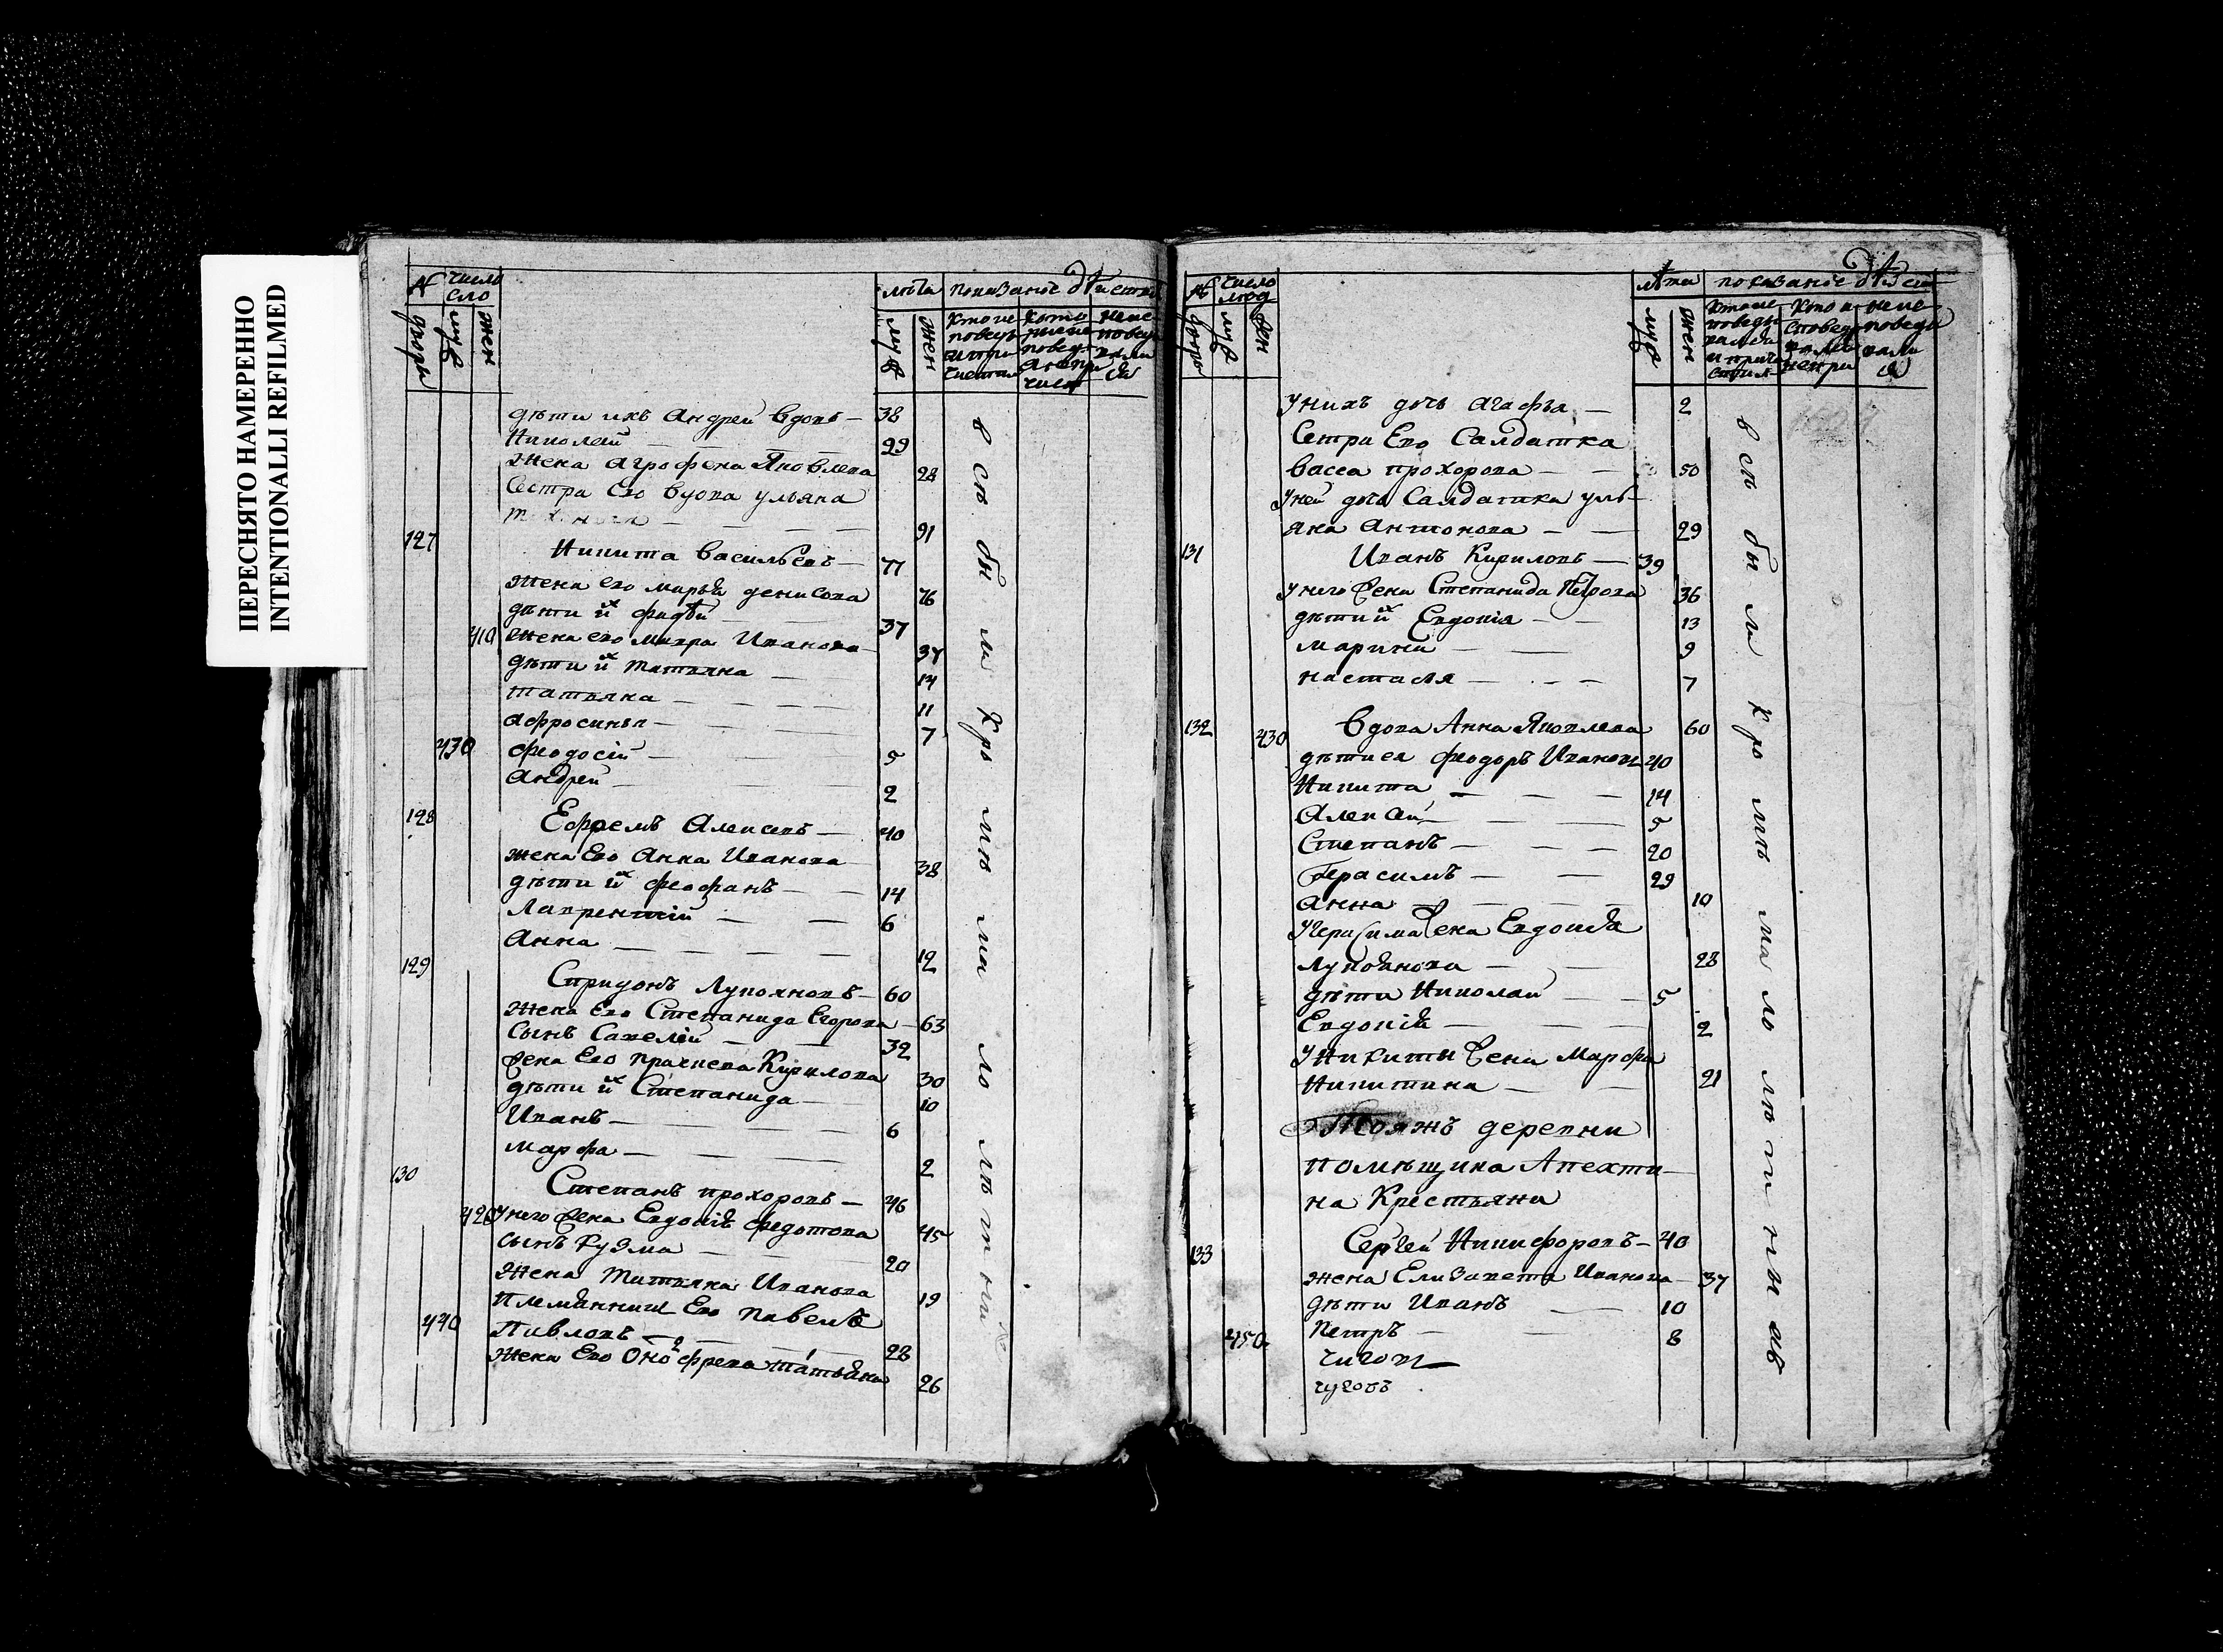 ПЕРЕСНЯТО НАМЕРЕННО
INTENTIONALLI REFILMED
№ число
двора муж жен
лѣта показаніе дѣйства
муж жен
дѣти ихъ Андрей вдовъ — 38
Николай — 29
жена Агрофена Яковлева 28
Сестра Его вдова ульяна
91
127 Никита Васильевъ — 77
жена его марья денисова 76
дѣти их фадѣй 37
410 жена его мавра Иванова 37
дѣти их татьяна 14
татьяна — 11
афросинья — 7
430 феодосій — 5
Андрей — 2
128 Ефремъ Алексевъ — 40
жена Его Анна Иванова 38
дѣти их феофанъ — 14
Лаврентій — 6
Анна — 12
129 Спридонъ Лукояновъ — 60
жена Его Степанида Егорова — 63
Сынъ Савелій — 32
жена Его Кирилова 30
дѣти их Степанида — 10
Иванъ — 6
марфа — 2
130 Степанъ прохоровъ — 46
420 унего жена Евдокія федотова 45
сынъ Кузма — 20
жена татьяна Иванова 19
племянник Его павелъ
440 Павловъ — 28
жена Его Оноѳрева татьяна 26
всѣ были кромѣ малолѣтных
№ число люд
двора муж жен
лѣта показаніе дѣйст
муж жен
унихъ дочь агафья — 2
Сетра Его Салдатка
васса прохорова — 50
уней дочь Салдатка уль-
яна антонова — 29
131 Иванъ Кириловъ — 39
унего жена Степанида Петрова 36
дѣти их Евдокія — 13
марина — 9
настася — 7
132 430 вдова Анна Яковлева 60
дѣти ея феодоръ Иванов 40
Никита — 14
Алексей — 5
Степанъ — 20
Герасимъ — 29
анна — 10
угерасима жена Евдокія
Лукоянова — 28
дѣти Николай — 5
Евдокія — 2
уникиты жена Марфа
Никитина — 21
Тояжъ деревни
помѣщика Апехти-
на Крестьяни
133 Сергей Никифоровъ — 40
жена Елизавета Иванова — 37
дѣти Иванъ — 10
450 Петръ — 8
чуговъ
всѣ были кромѣ малолѣтныхъ